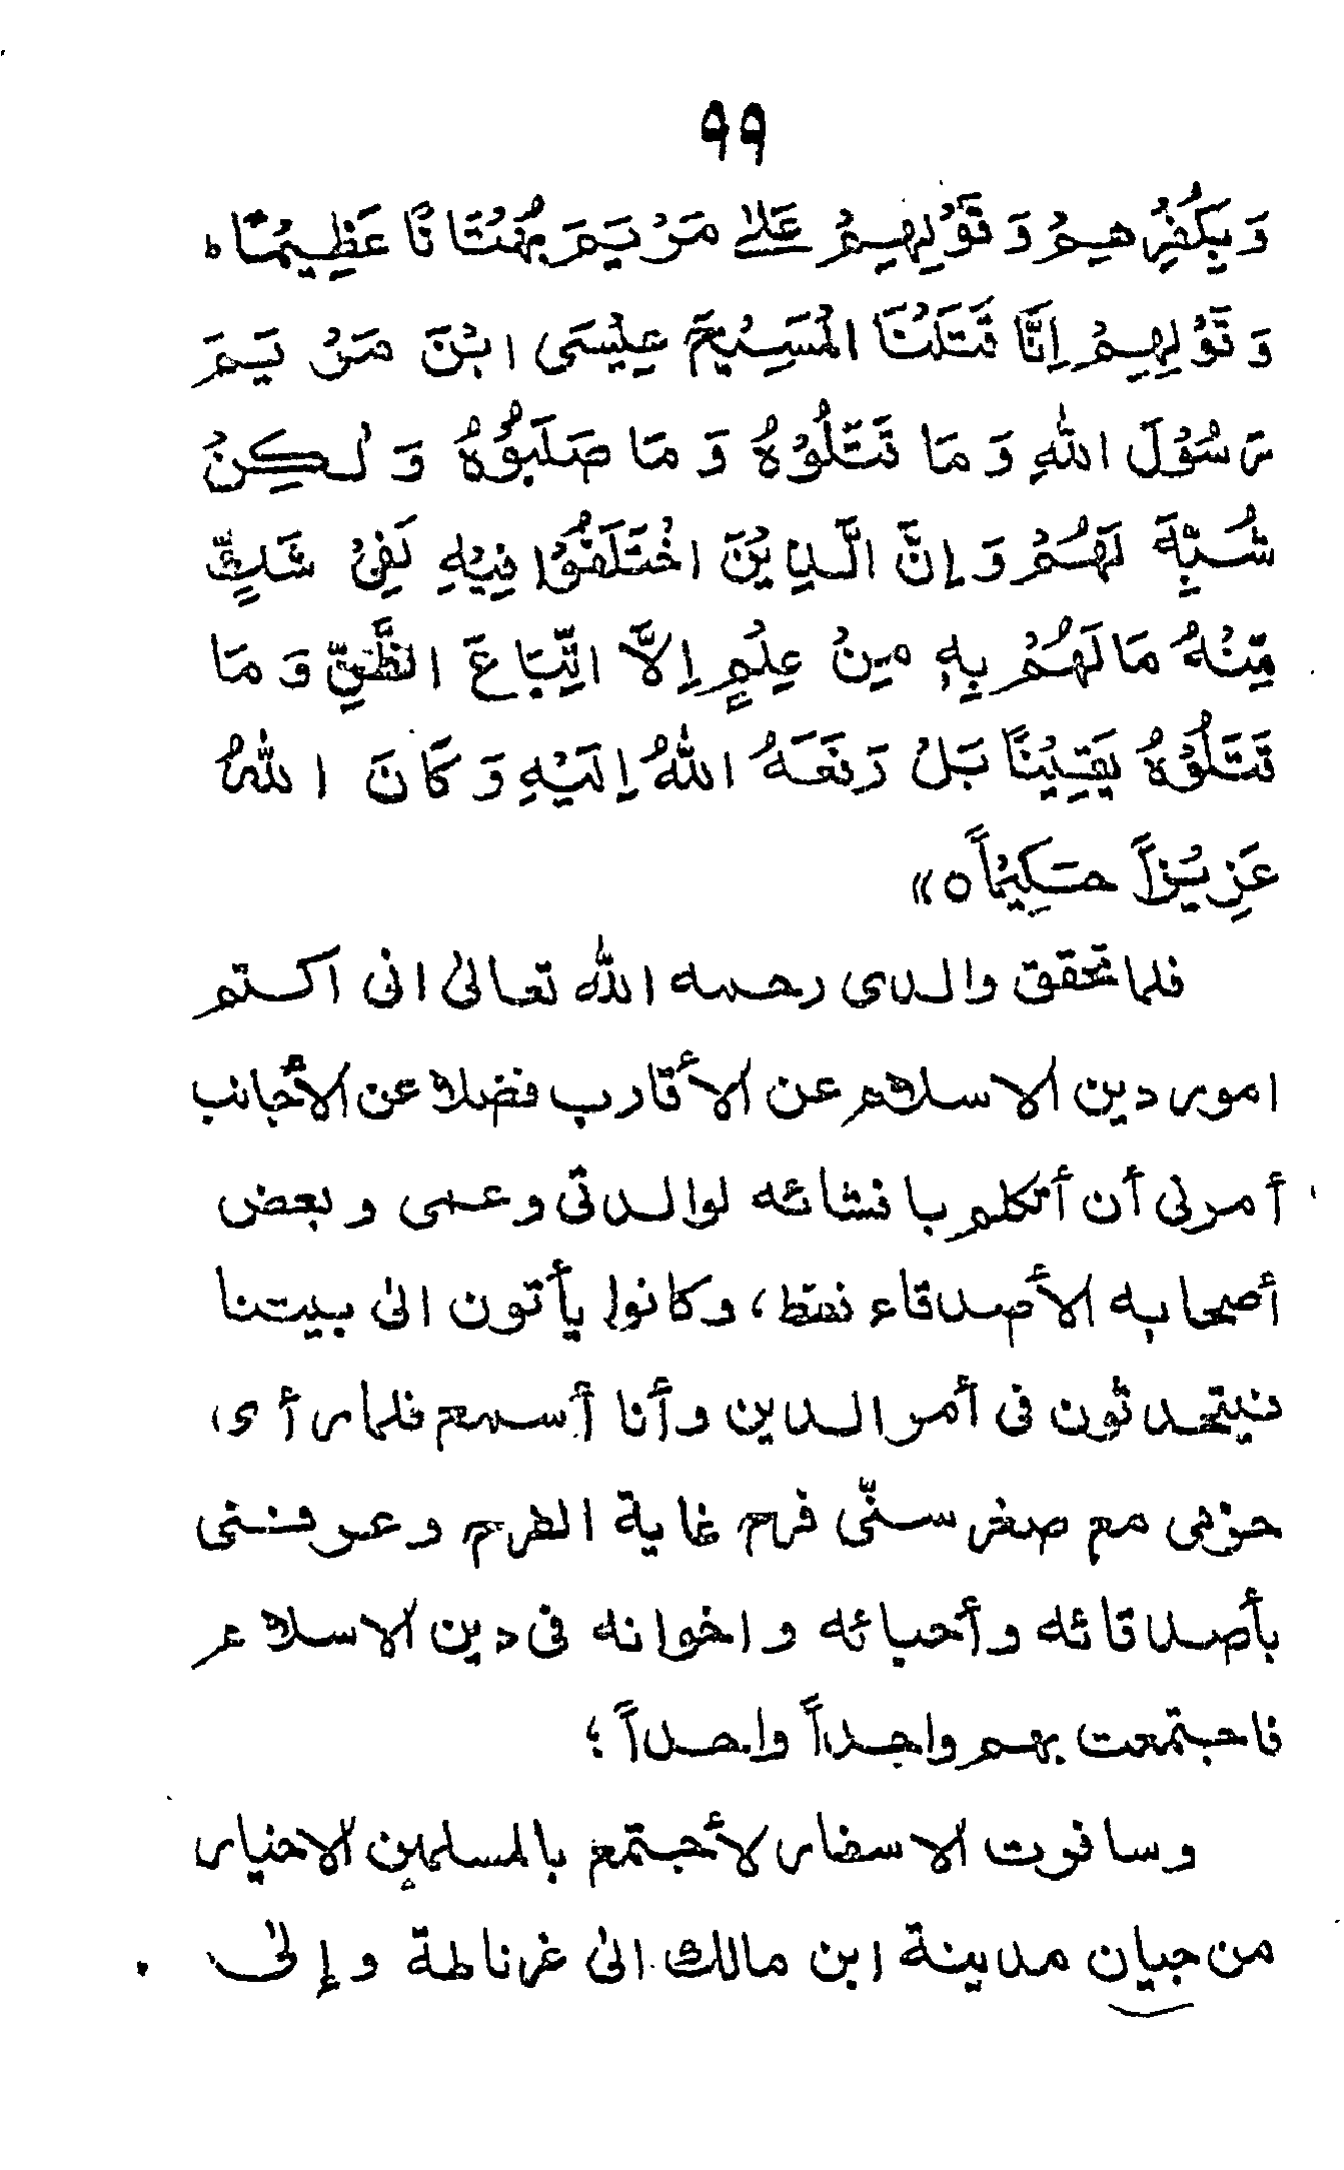 ٩٩
وَبِكُفْرِهِمْ وَقَوْلِهِمْ عَلٰى مَرْيَمَ بُهْتَانًا عَظِيمًا ه
وَقَوْلِهِمْ اِنَّا قَتَلْنَا الْمَسِيْحَ عِيْسَى ابْنَ مَرْيَمَ
رَسُوْلَ اللّٰهِ وَمَا قَتَلُوْهُ وَمَا صَلَبُوْهُ وَلٰكِنْ
شُبِّهَ لَهُمْ وَإِنَّ الَّذِيْنَ اخْتَلَفُوْا فِيْهِ لَفِىْ شَكٍّ
مِّنْهُ مَالَهُمْ بِهٖ مِنْ عِلْمٍ اِلَّا اتِّبَاعَ الظَّنِّ وَمَا
قَتَلُوْهُ يَقِيْنًا بَلْ رَفَعَهُ اللّٰهُ اِلَيْهِ وَكَانَ اللّٰهُ
عَزِيْزاً حَكِيْمًا ه»
فلما تحقق والدى رحمه اللّٰه تعالىٰ انى اكتم
امور دين الاسلام عن الأقارب فضلا عن الأجانب
أمرنى أن أتكلم بافشائه لوالدتى وعمى وبعض
أصحابه الأصدقاء فقط، وكانوا يأتون الىٰ بيتنا
فيتحدثون فى أمر الدين وأنا أسمع فلما رأى،
حزمى مع صغر سنّى فرح غاية الفرح وعرفنى
بأصدقائه وأحبائه واخوانه فى دين الاسلام
فاجتمعت بهم واحداً واحداً؛
وسافرت الاسفار لأجتمع بالمسلمين الاخيار
من جيان مدينة ابن مالك الىٰ غرناطة وإلىٰ